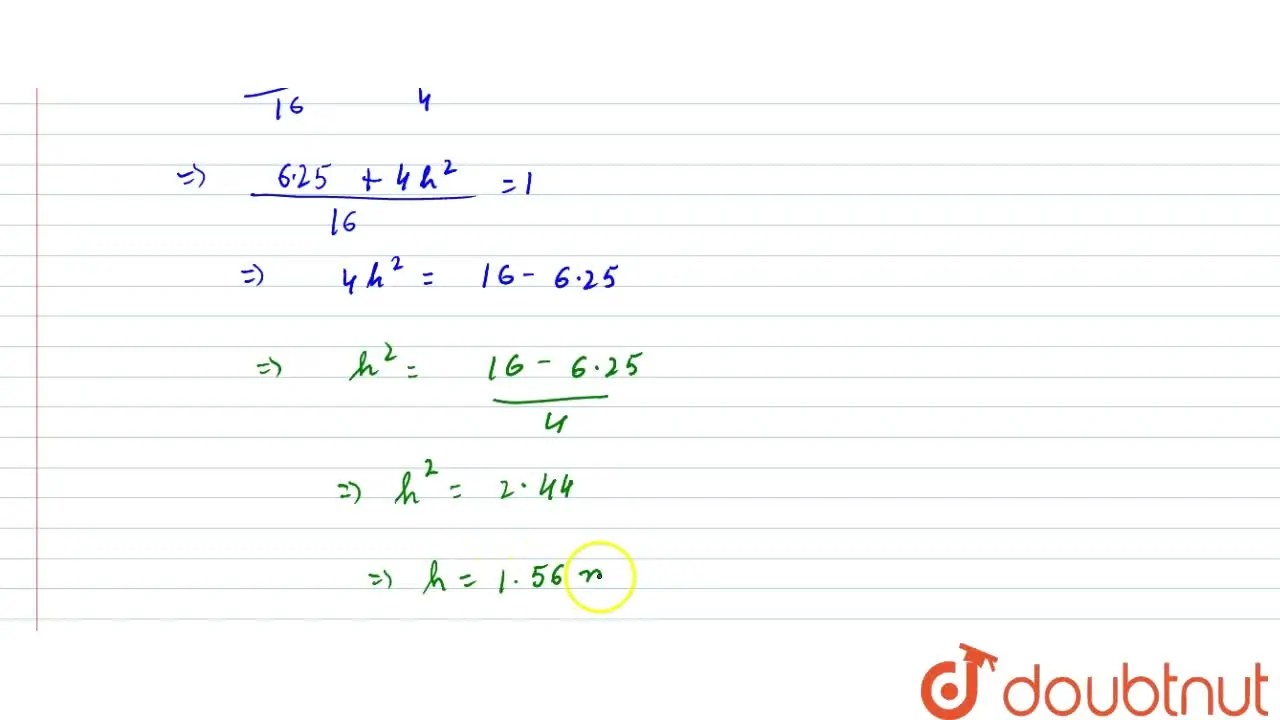 16 4
=> 6.25 + 4h² = 1
16
=> 4h² = 16 - 6.25
=> h² = 16 - 6.25
4
=> h² = 2.44
=> h = 1.56 m
doubtnut